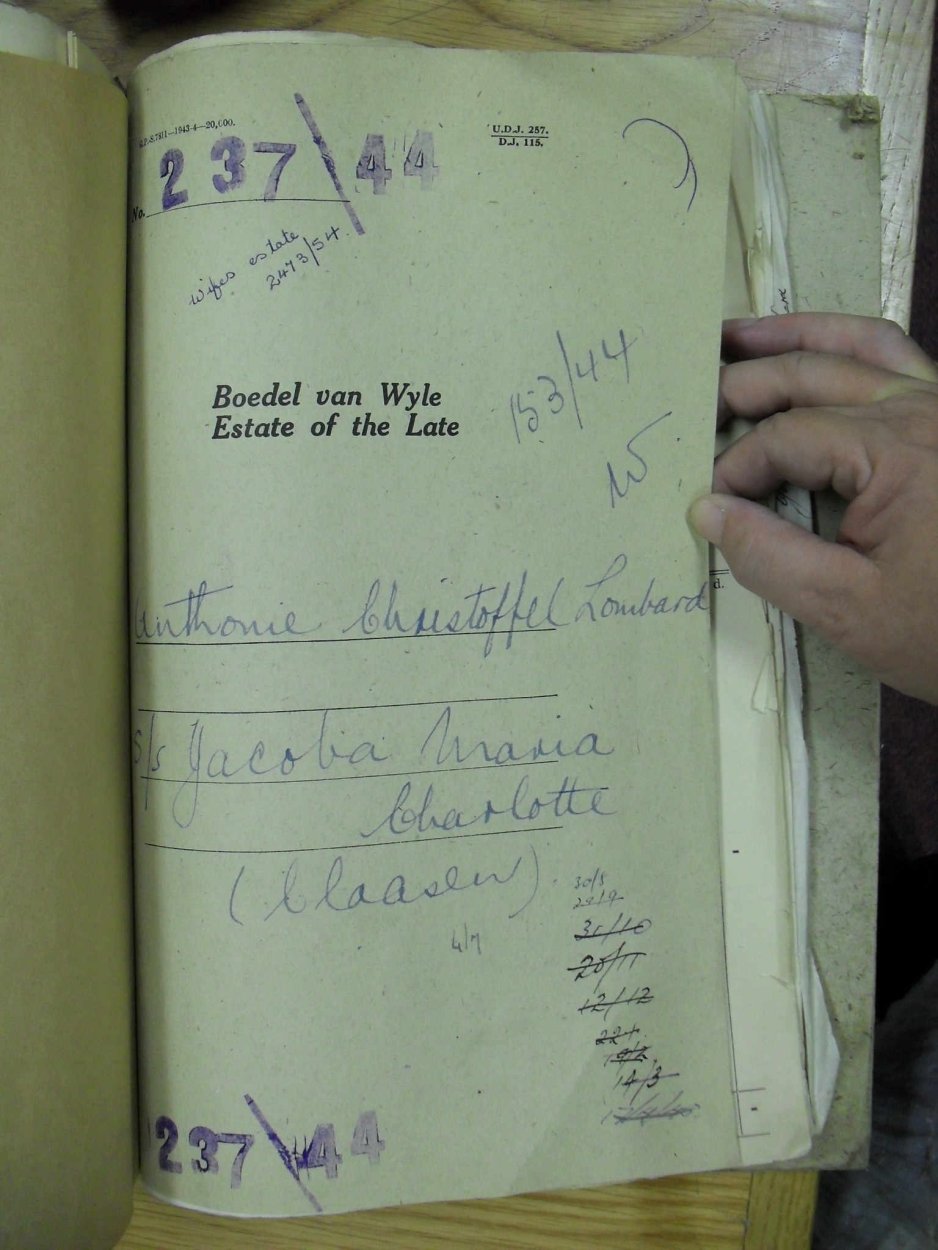 S.7811—1943-4—20,000.
U.D.J. 257.
D.J. 115.
No. 237/44
wifes estate
2473/54
153/44
W.
Boedel van Wyle
Estate of the Late
Anthonie Christoffel Lombard
s/s Jacoba Maria
Charlotte
(Claasen)
4/7
30/5
31/10
20/11
12/12
14/3
d.
237/44